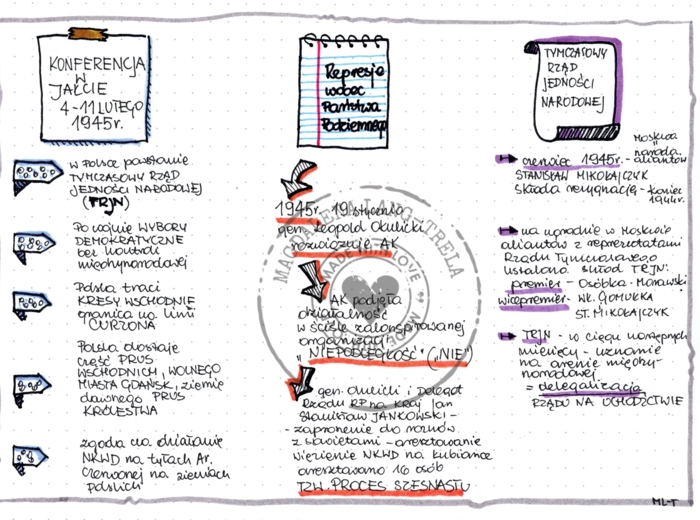 KONFERENCJA
W
JAŁCIE
4-11 LUTEGO
1945r.
w Polsce powstanie
TYMCZASOWY RZĄD
JEDNOŚCI NARODOWEJ
(TRJN)
Po wojnie WYBORY
DEMOKRATYCZNE
bez kontroli
międzynarodowej
Polska traci
KRESY WSCHODNIE
granica na linii
CURZONA
Polska dostaje
część PRUS
WSCHODNICH, WOLNEGO
MIASTA GDAŃSK, ziemie
dawnego PRUS
KRÓLESTWA
zgoda na działanie
NKWD na tyłach Ar.
Czerwonej na ziemiach
Polskich
Represje
wobec
Państwa
Podziemnego
1945r. 19 stycznia
gen. Leopold Okulicki
rozwiązuje AK
AK podjęta
działalność
w ściśle zakonspirowanej
organizacji
"NIEPODLEGŁOŚĆ" ("NIE")
gen. Okulicki i Delegat
Rządu RP na Kraj Jan
Stanisław JANKOWSKI -
- zaproszenie do rozmów
z sowietami - aresztowanie
więzienie NKWD na Łubiance
aresztowano 16 osób
TZW. PROCES SZESNASTU
TYMCZASOWY
RZĄD
JEDNOŚCI
NARODOWEJ
Moskwa
narada
czerwiec 1945r. - aliantów
STANISŁAW MIKOŁAJCZYK
składa rezygnację - koniec
1944r.
na naradzie w Moskwie
aliantów z reprezentatami
Rządu Tymczasowego
ustalono skład TRJN:
premier - Osóbka-Morawski
wicepremier - WŁ. GOMUŁKA
ST. MIKOŁAJCZYK
TRJN - w ciągu następnych
miesięcy - uznanie
na arenie między-
narodowej
= delegalizacja
RZĄDU NA UCHODŹCTWIE
MAGDALENA LANG-TRELA
MADE WITH LOVE
ML-T